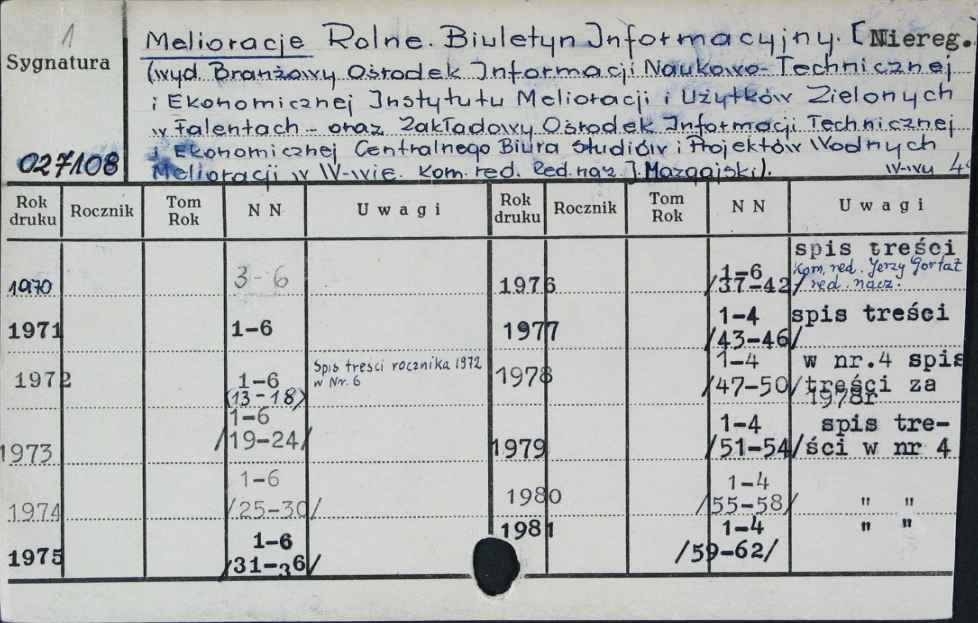 1
Sygnatura
027108
Melioracje Rolne. Biuletyn Informacyjny. [Niereg.
(wyd. Branżowy Ośrodek Informacji Naukowo-Technicznej
i Ekonomicznej Instytutu Melioracji i Użytków Zielonych
w Falentach - oraz Zakładowy Ośrodek Informacji Technicznej
i Ekonomicznej Centralnego Biura Studiów i Projektów Wodnych
Melioracji w W-wie. Kom. red. Red. nacz. J. Mazgajski).
W-wy
Rok druku Rocznik Tom Rok NN Uwagi Rok druku Rocznik Tom Rok NN Uwagi
1970 3-6
1971 1-6
1972 1-6 (13-18) Spis treści rocznika 1972 w Nr. 6
1973 1-6 /19-24/
1974 1-6 /25-30/
1975 1-6 /31-36/
1976 1-6 /37-42/ spis treści Kom. red. Jerzy Gortat red. nacz.
1977 1-4 /43-46/ spis treści
1978 1-4 /47-50/ w nr.4 spis treści za 1978r
1979 1-4 /51-54/ spis tre-ści w nr 4
1980 1-4 /55-58/ " "
1981 1-4 /59-62/ " "